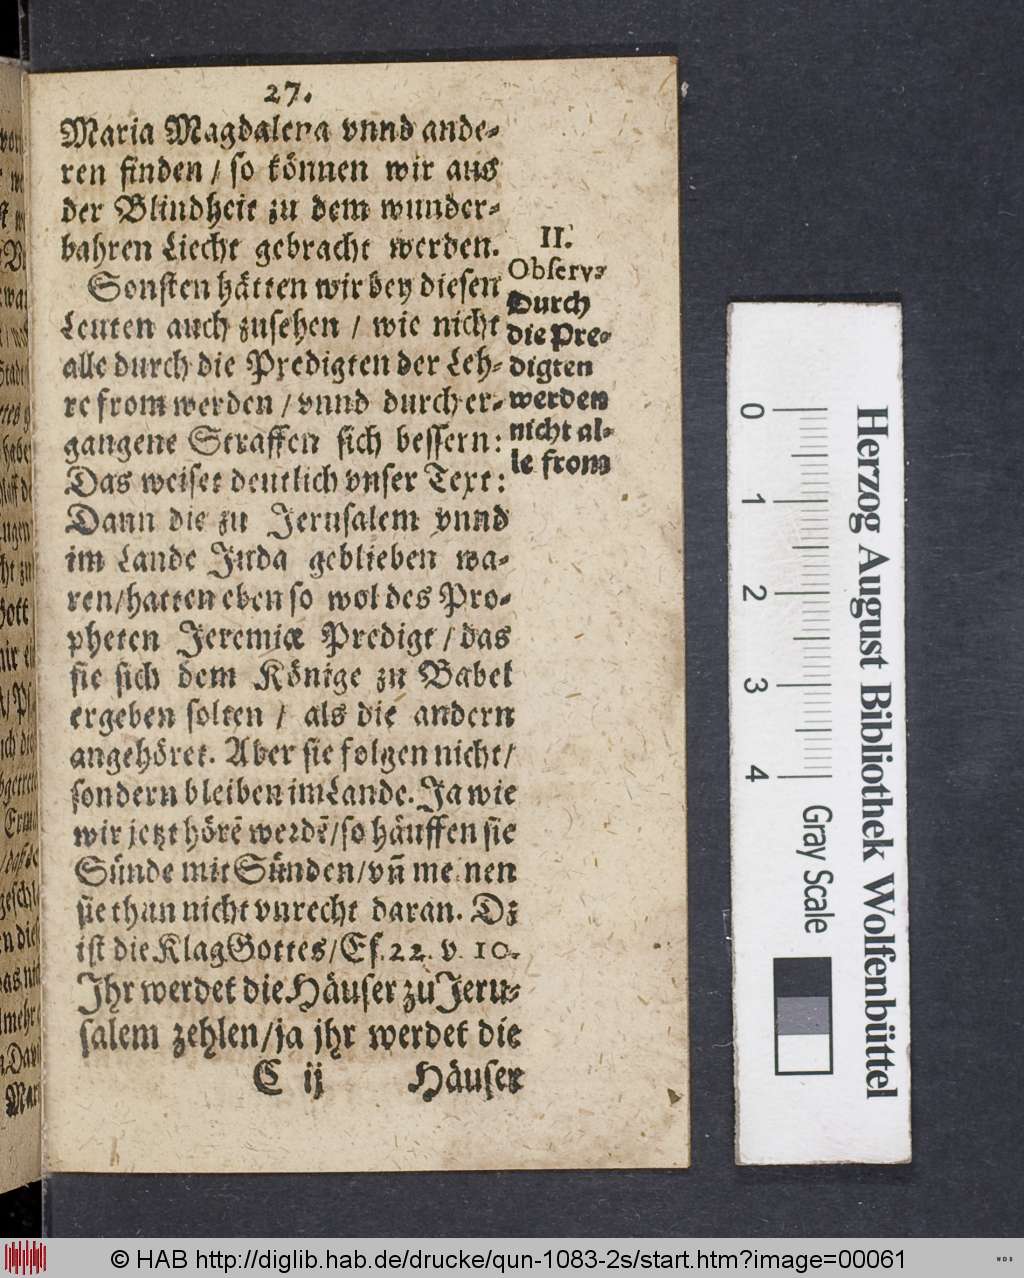 27.
Maria Magdalena vnnd ande-
ren finden / so können wir aus
der Blindheit zu dem wunder-
bahren Liecht gebracht werden.
Sonsten hätten wir bey diesen
Leuten auch zusehen / wie nicht
alle durch die Predigten der Leh-
re from werden / vnnd durch er-
gangene Straffen sich bessern:
Das weiset deutlich vnser Text:
Dann die zu Jerusalem vnnd
im Lande Juda geblieben wa-
ren/hatten eben so wol des Pro-
pheten Jeremiæ Predigt / das
sie sich dem Könige zu Babel
ergeben solten / als die andern
angehöret. Aber sie folgen nicht/
sondern bleiben im Lande. Ja wie
wir jetzt hörē werdē/so häuffen sie
Sünde mit Sünden/vñ meinen
sie thun nicht vnrecht daran. Dz
ist die Klag Gottes/Es. 22. v. 10.
Ihr werdet die Häuser zu Jeru-
salem zehlen/ja jhr werdet die
C ij Häuser
II.
Observ-
Durch
die Pre-
digten
werden
nicht al-
le from
Herzog August Bibliothek Wolfenbüttel
0 1 2 3 4
Gray Scale
© HAB http://diglib.hab.de/drucke/qun-1083-2s/start.htm?image=00061